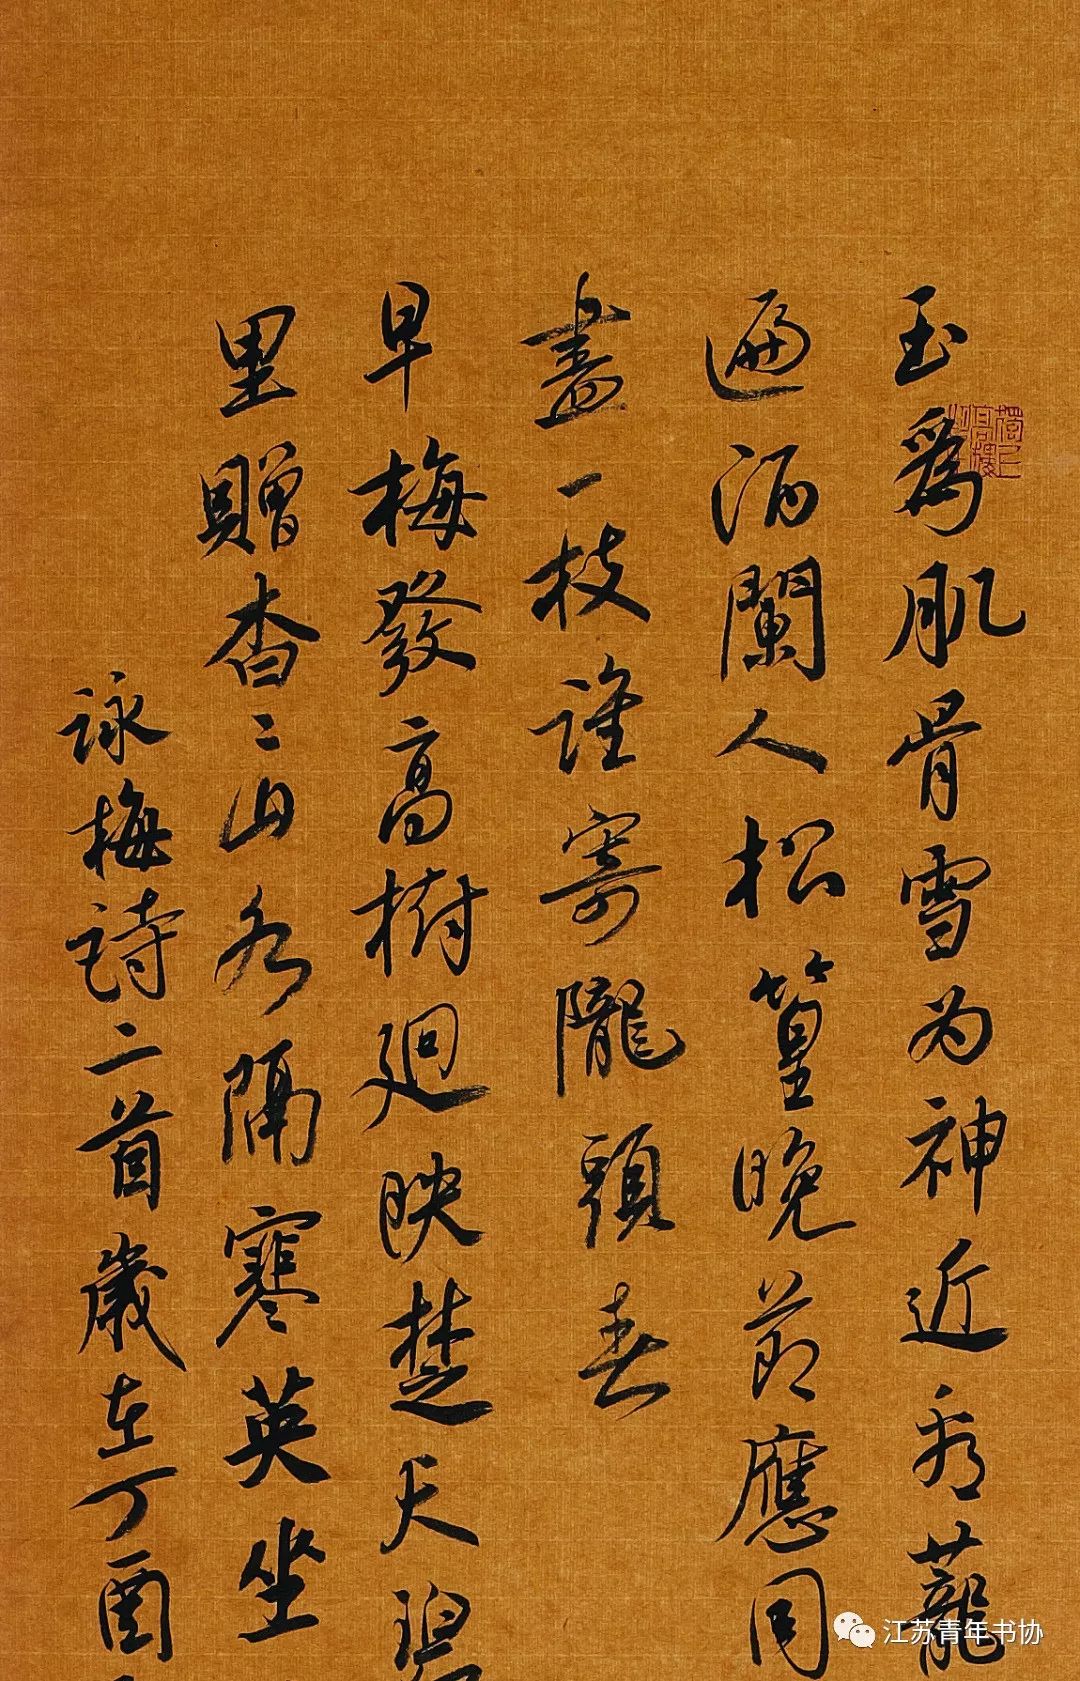 玉為肌骨雪为神近看蘢
遍酒闌人松篁晚節應同
盡一枝誰寄隴頭春
早梅發高樹迥映楚天碧
里贈杳〻山水隔寒英坐
詠梅詩二首歲在丁酉
江苏青年书协